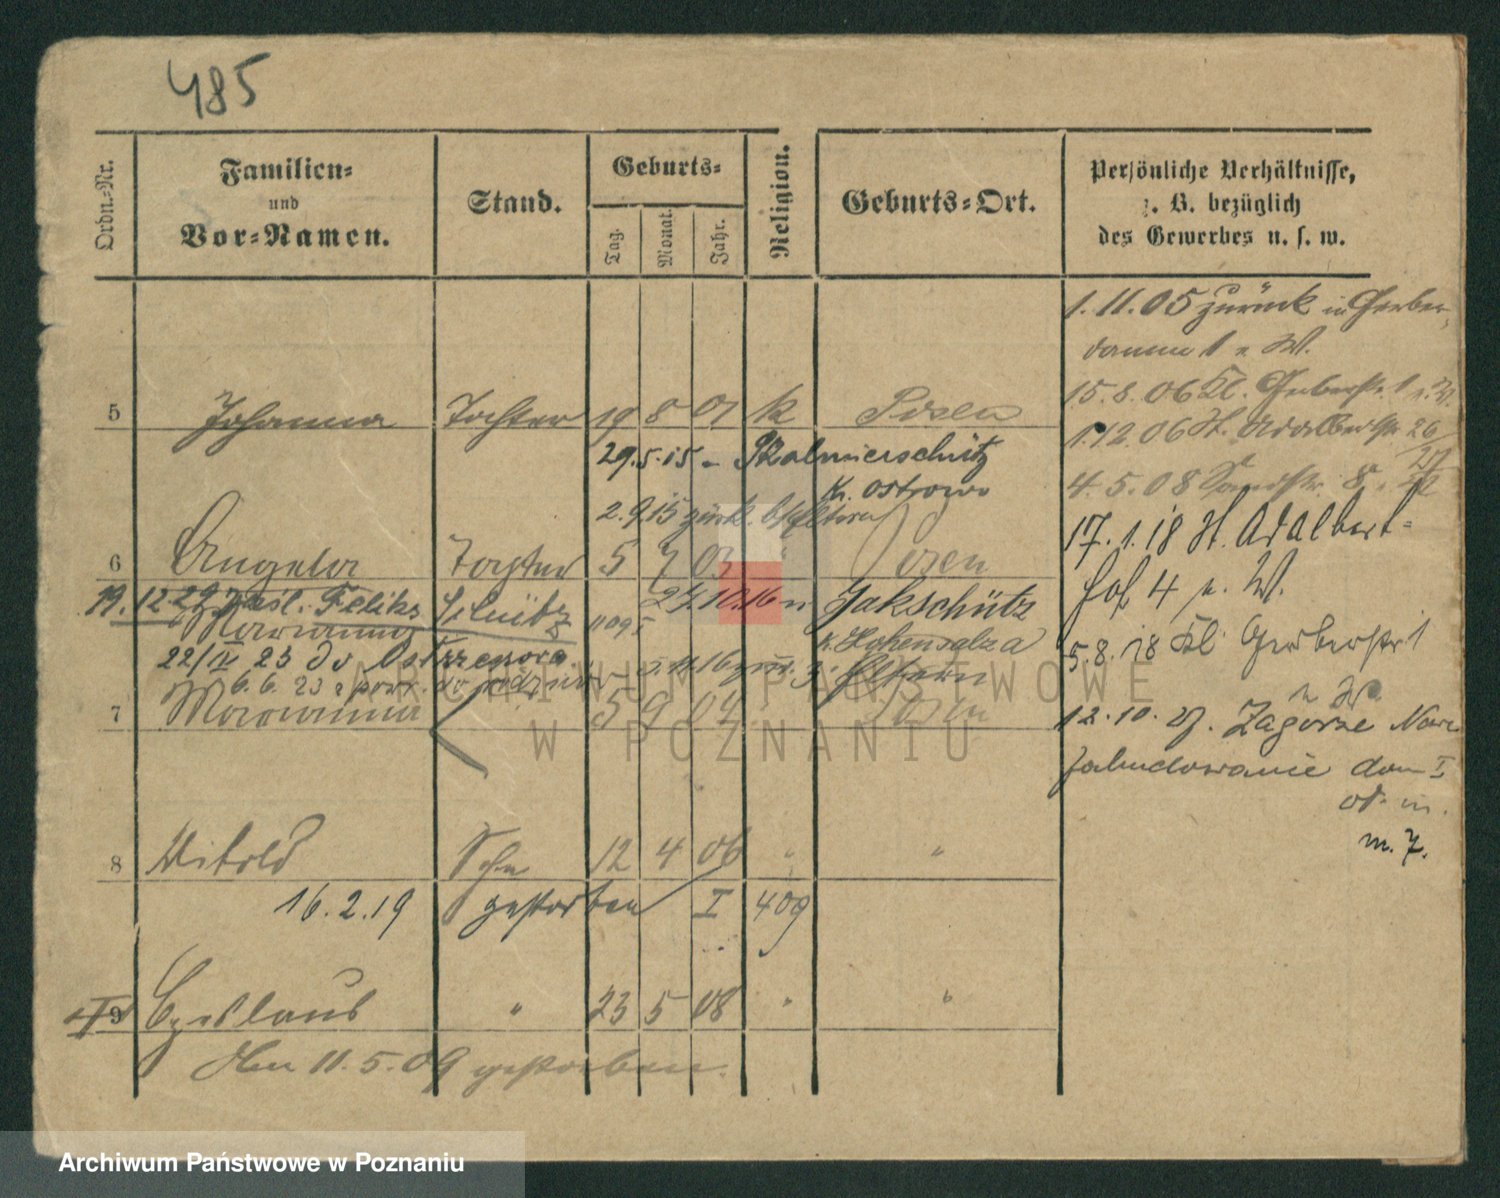 485
Ordn.-Nr.
Familien- und Vor-Namen.
Stand.
Geburts-
Tag.
Monat.
Jahr.
Religion.
Geburts-Ort.
Persönliche Verhältnisse,
z. B. bezüglich
des Gewerbes u. s. w.
1.11.05 zurück in Gerber-
damm 1 W.
15.8.06 Kl. Gerberstr. 1
1.12.06 St. Adalbertstr. 26
4.5.08 Sandstr. 8
17.1.18 St. Adalbert-
hof 4 W.
5.8.18 Kl. Gerberstr 1
12.10. Zagórze
zabudowanie dom I
m. 7.
5 Johanna Tochter 19 8 01 k Posen
29.5.15 - Skalmierschütz
Kr. Ostrowo
2.9.15 zurück Eltern
6 Angela Tochter 5 7 03 Posen
19.12.29 Feliks
24.10.16 n Jakschütz
Marianną
K. Hohensalza
22/IV 23 do
Eltern
6.6.23
7 Marianna 5 9 04 Posen
8 Witold Sohn 12 4 06 " "
16.2.19 gestorben I 409
9 Czeslaus " 23 5 08 " "
Den 11.5.09 gestorben.
ARCHIWUM PAŃSTWOWE
W POZNANIU
Archiwum Państwowe w Poznaniu